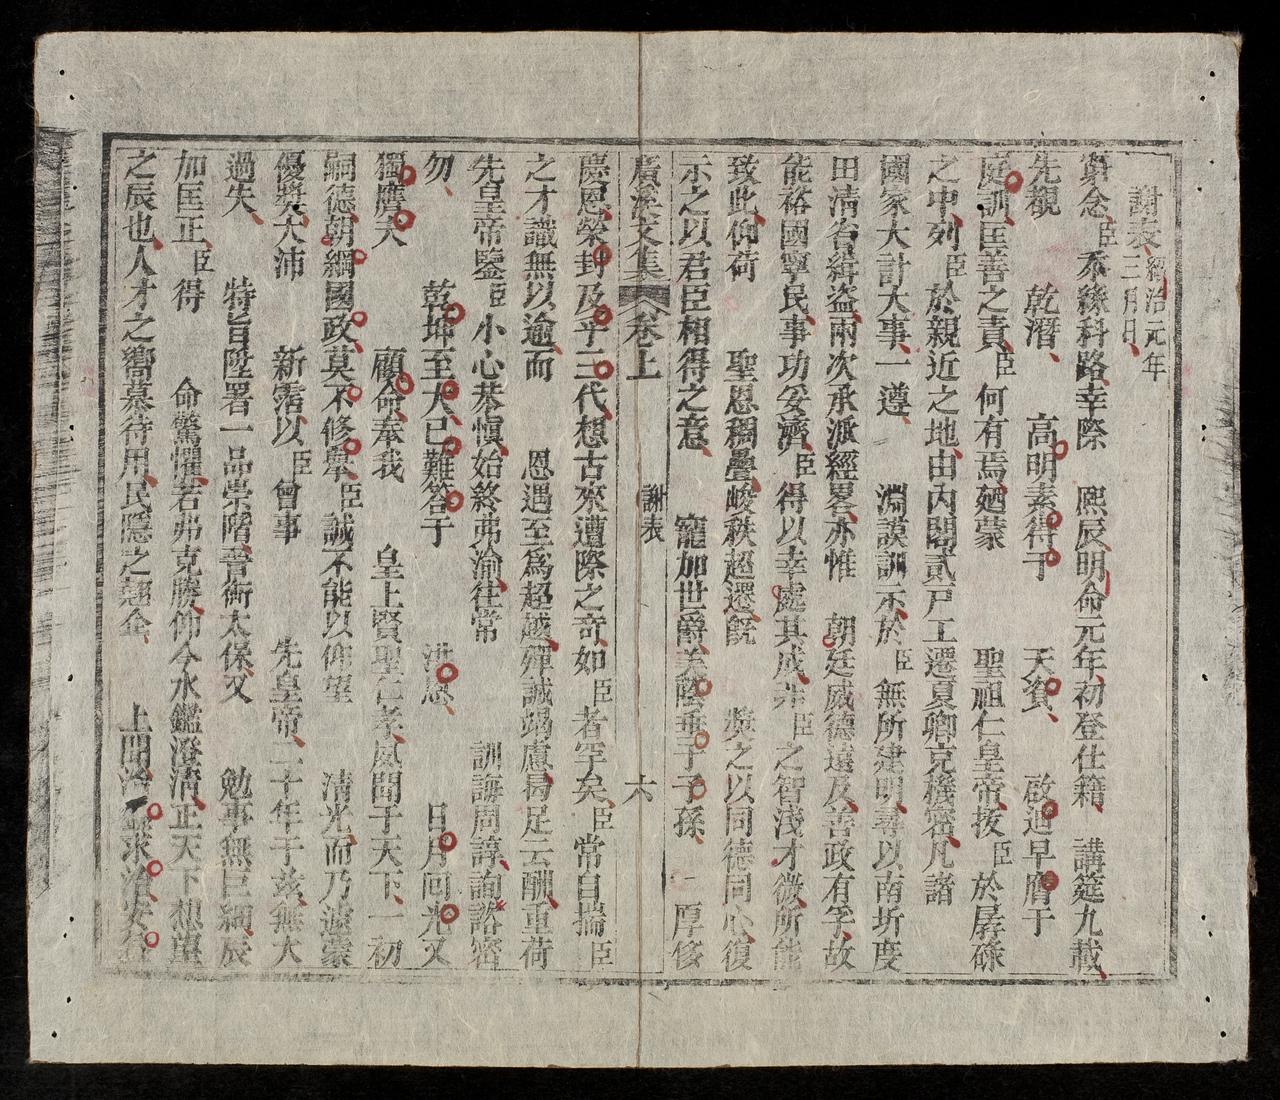 謝表紹治元年三月日
窮念臣忝緣科路幸際 熙辰明命元年初登仕籍 講筵九載
先觀 乾潛 高明素得于 天資 啟迪早膺于
庭訓匡善之責臣何有焉廼蒙 聖祖仁皇帝拔臣於孱碌
之中列臣於親近之地由內閣貳尸工遷夏卿克機密凡諸
國家大計大事一遵 淵謨訓示於臣無所建明尋以南圻度
田清台緝盜兩次承派經畧亦惟 朝廷威德遠及善政有孚故
能裕國寧民事功妥濟臣得以幸處其成非臣之智淺才微所能
致此仰荷 聖恩稠疊峻秩超遷旣 奬之以同德同心復
示之以君臣相得之意 寵加世爵美蔭垂于子孫 厚俢
廣溪文集 卷上 謝表 六
慶恩榮封及乎三代想古來遭際之奇如臣者罕矣臣常自揣臣
之才識無以逾而 恩遇至爲超越殫誠竭慮曷足云酬重荷
先皇帝鑒臣小心恭愼始終弗渝往常 訓誨周諄詢諮密
勿 乾坤至大已難答于 洪恩 日月回光又
獨膺夫 顧命奉我 皇上賢聖仁孝風聞于天下一初
嗣德朝綱國政莫不修舉臣誠不能以仰望 清光而乃遽蒙
優奬大沛 新霑以臣曾事 先皇帝二十年于茲無大
過失 特旨陞署一品崇階晉銜太保又 勉事無巨細辰
加匡正臣得 命驚懼若弗克勝仰今水鑑澄清正天下想望
之辰也人才之嚮慕待用民隱之翹企 上聞治 求治安益